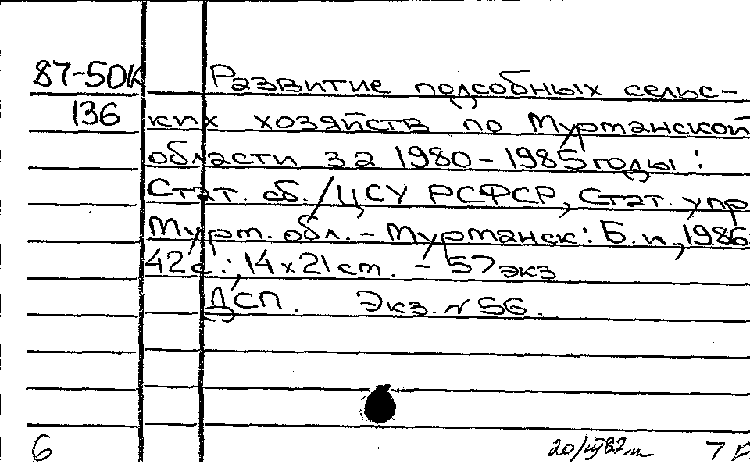 87-5DK Развитие подсобных сельс-
136 ких хозяйств по Мурманской
области за 1980-1985 годы:
Стат. сб./ЦСУ РСФСР, Стат. упр
Мурм. обл. - Мурманск: Б.и., 1986
42 с.; 14x21 см. - 57 экз
ДСП. Экз. № 56.
6 7